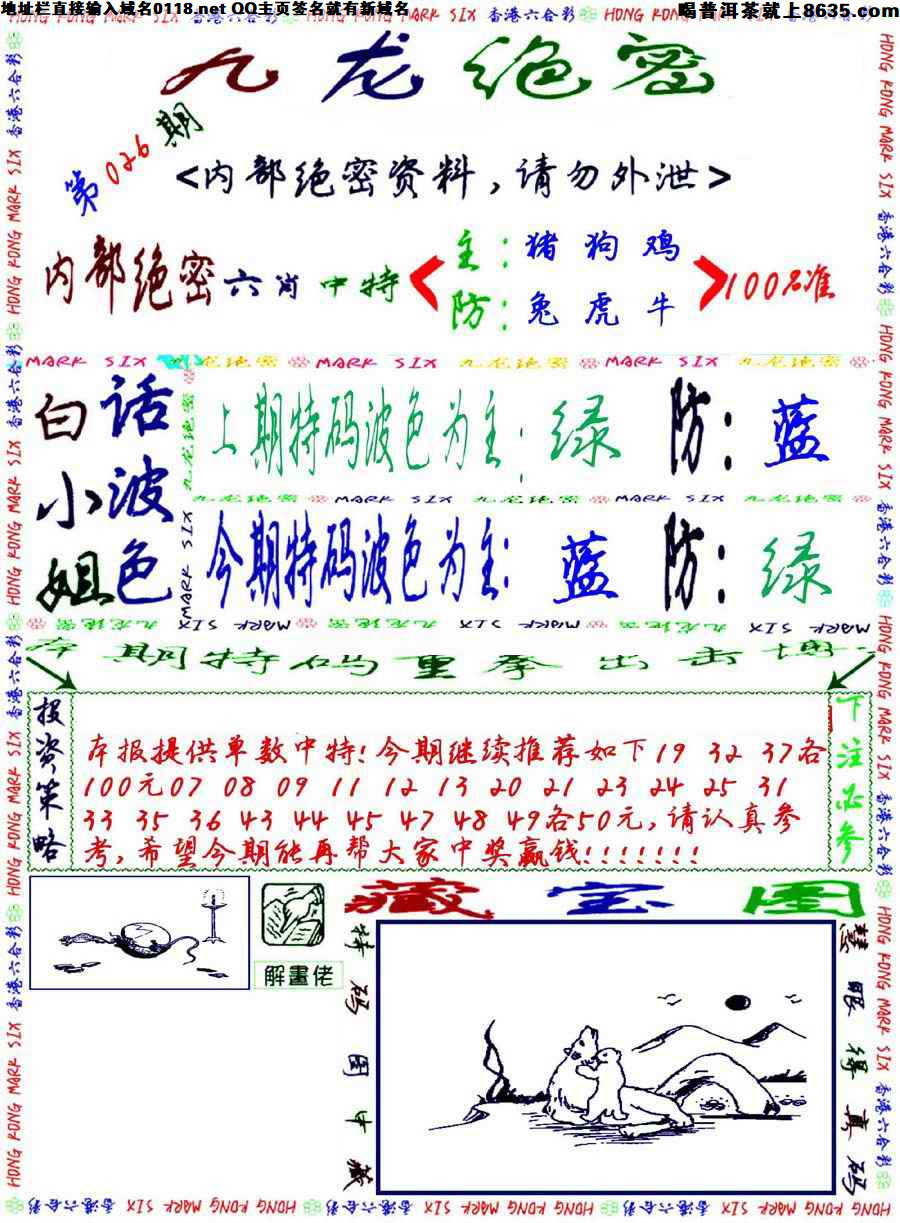 地址栏直接输入域名0118.net QQ主页签名就有新域名
喝普洱茶就上8635.com
九龙绝密
第026期
<内部绝密资料,请勿外泄>
内部绝密六肖中特
主:猪狗鸡
防:兔虎牛
100%准
白小姐
话波色
上期特码波色为主:绿 防:蓝
今期特码波色为主:蓝 防:绿
本期特码重拳出击博
投资策略
本报提供单数中特!今期继续推荐如下19 32 37各
100元07 08 09 11 12 13 20 21 23 24 25 31
33 35 36 43 44 45 47 48 49各50元,请认真参
考,希望今期能再帮大家中奖赢钱!!!!!!!
下注必参
解畫佬
藏宝图
特码图中藏
慧眼得真码
HONG KONG MARK SIX 香港六合彩
MARK SIX 九龙绝密